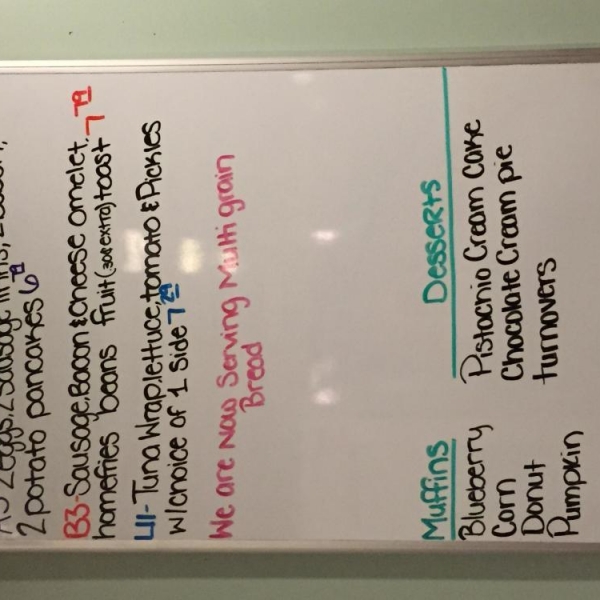 2 eggs, 2 sausage links, 2
2 potato pancakes 6 79
B3-Sausage, Bacon & Cheese omelet, 7 79
homefries beans fruit (30¢ extra) toast
L11-Tuna Wrap, lettuce, tomato & Pickles
w/choice of 1 side 7 29
We are Now Serving Multi grain
Bread
Muffins
Blueberry
Corn
Donut
Pumpkin
Desserts
Pistachio Cream cake
Chocolate Cream pie
turnovers